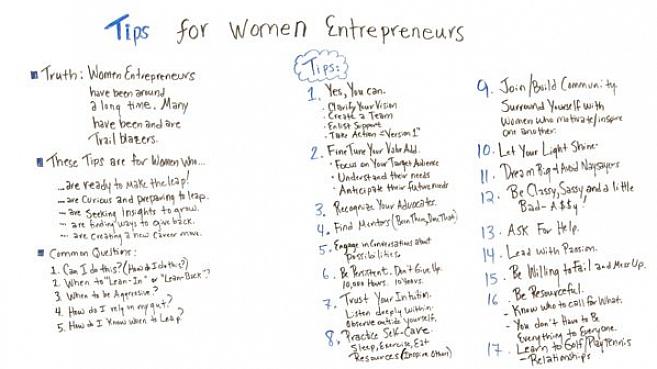 Tips for Women Entrepreneurs
Truth: Women Entrepreneurs
have been around
a long time. Many
have been and are
Trail blazers.
These Tips are for Women Who...
...are ready to make the leap!
...are curious and preparing to leap.
... are seeking insights to grow.
... are finding ways to give back.
... are creating a new career move.
Common Questions:
1. Can I do this? (How do I do this?)
2. When to "Lean-In" or "Lean-Back"?
3. When to be Aggressive?
4. How do I rely on my gut?
5. How do I know when to Leap?
Tips:
1. Yes, You Can.
- Clarify Your Vision
- Create a Team
- Enlist Support
- Take Action = "Version 1"
2. Fine Tune Your Value Add.
• Focus on Your Target Audience
• Understand their needs
• Anticipate their future needs
3. Recognize Your Advocates.
4. Find Mentors (Been There, Done That)
5. Engage in Conversations about
Possibilities.
6. Be Persistent. Don't Give Up.
10,000 Hours. 10 Years.
7. Trust Your Intuition.
Listen deeply within.
Observe outside yourself.
8. Practice Self-Care.
Sleep, Exercise, Eat
Resources (Inspire Others)
9. Join/Build Community.
Surround Yourself with
Women who motivate/inspire
one another.
10. Let Your Light Shine.
11. Dream Big & Avoid Naysayers
12. Be Classy, Sassy and a little
Bad-A$$y!
13. Ask For Help.
14. Lead with Passion.
15. Be Willing to Fail and Mess Up.
16. Be Resourceful.
- Know who to call for What.
- You don't Have to Be
Everything to Everyone.
17. Learn to Golf/Play Tennis
- Relationships